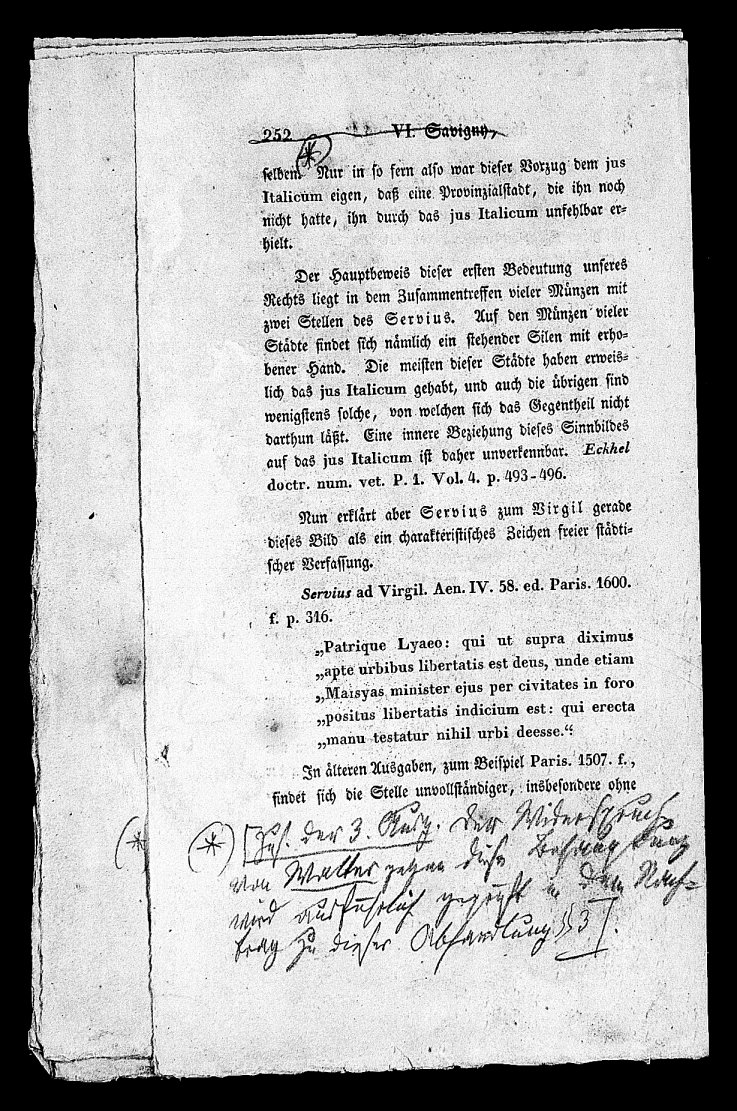 252 VI. Savigny,
(*)
selbem Nur in so fern also war dieser Vorzug dem jus
Italicum eigen, daß eine Provinzialstadt, die ihn noch
nicht hatte, ihn durch das jus Italicum unfehlbar er-
hielt.
Der Hauptbeweis dieser ersten Bedeutung unseres
Rechts liegt in dem Zusammentreffen vieler Münzen mit
zwei Stellen des Servius. Auf den Münzen vieler
Städte findet sich nämlich ein stehender Silen mit erho-
bener Hand. Die meisten dieser Städte haben erweis-
lich das jus Italicum gehabt, und auch die übrigen sind
wenigstens solche, von welchen sich das Gegentheil nicht
darthun läßt. Eine innere Beziehung dieses Sinnbildes
auf das jus Italicum ist daher unverkennbar. Eckhel
doctr. num. vet. P. 1. Vol. 4. p. 493-496.
Nun erklärt aber Servius zum Virgil gerade
dieses Bild als ein charakteristisches Zeichen freier städti-
scher Verfassung.
Servius ad Virgil. Aen. IV. 58. ed. Paris. 1600.
f. p. 316.
„Patrique Lyaeo: qui ut supra diximus
„apte urbibus libertatis est deus, unde etiam
„Marsyas minister ejus per civitates in foro
„positus libertatis indicium est: qui erecta
„manu testatur nihil urbi deesse.“
In älteren Ausgaben, zum Beispiel Paris. 1507. f.,
findet sich die Stelle unvollständiger, insbesondere ohne
(*) (*) [Zus. der 3. Ausg. Der Widerspruch
von Walter gegen diese Behauptung
wird ausführlich geprüft in dem Nach=
trag zu dieser Abhandlung § 3].